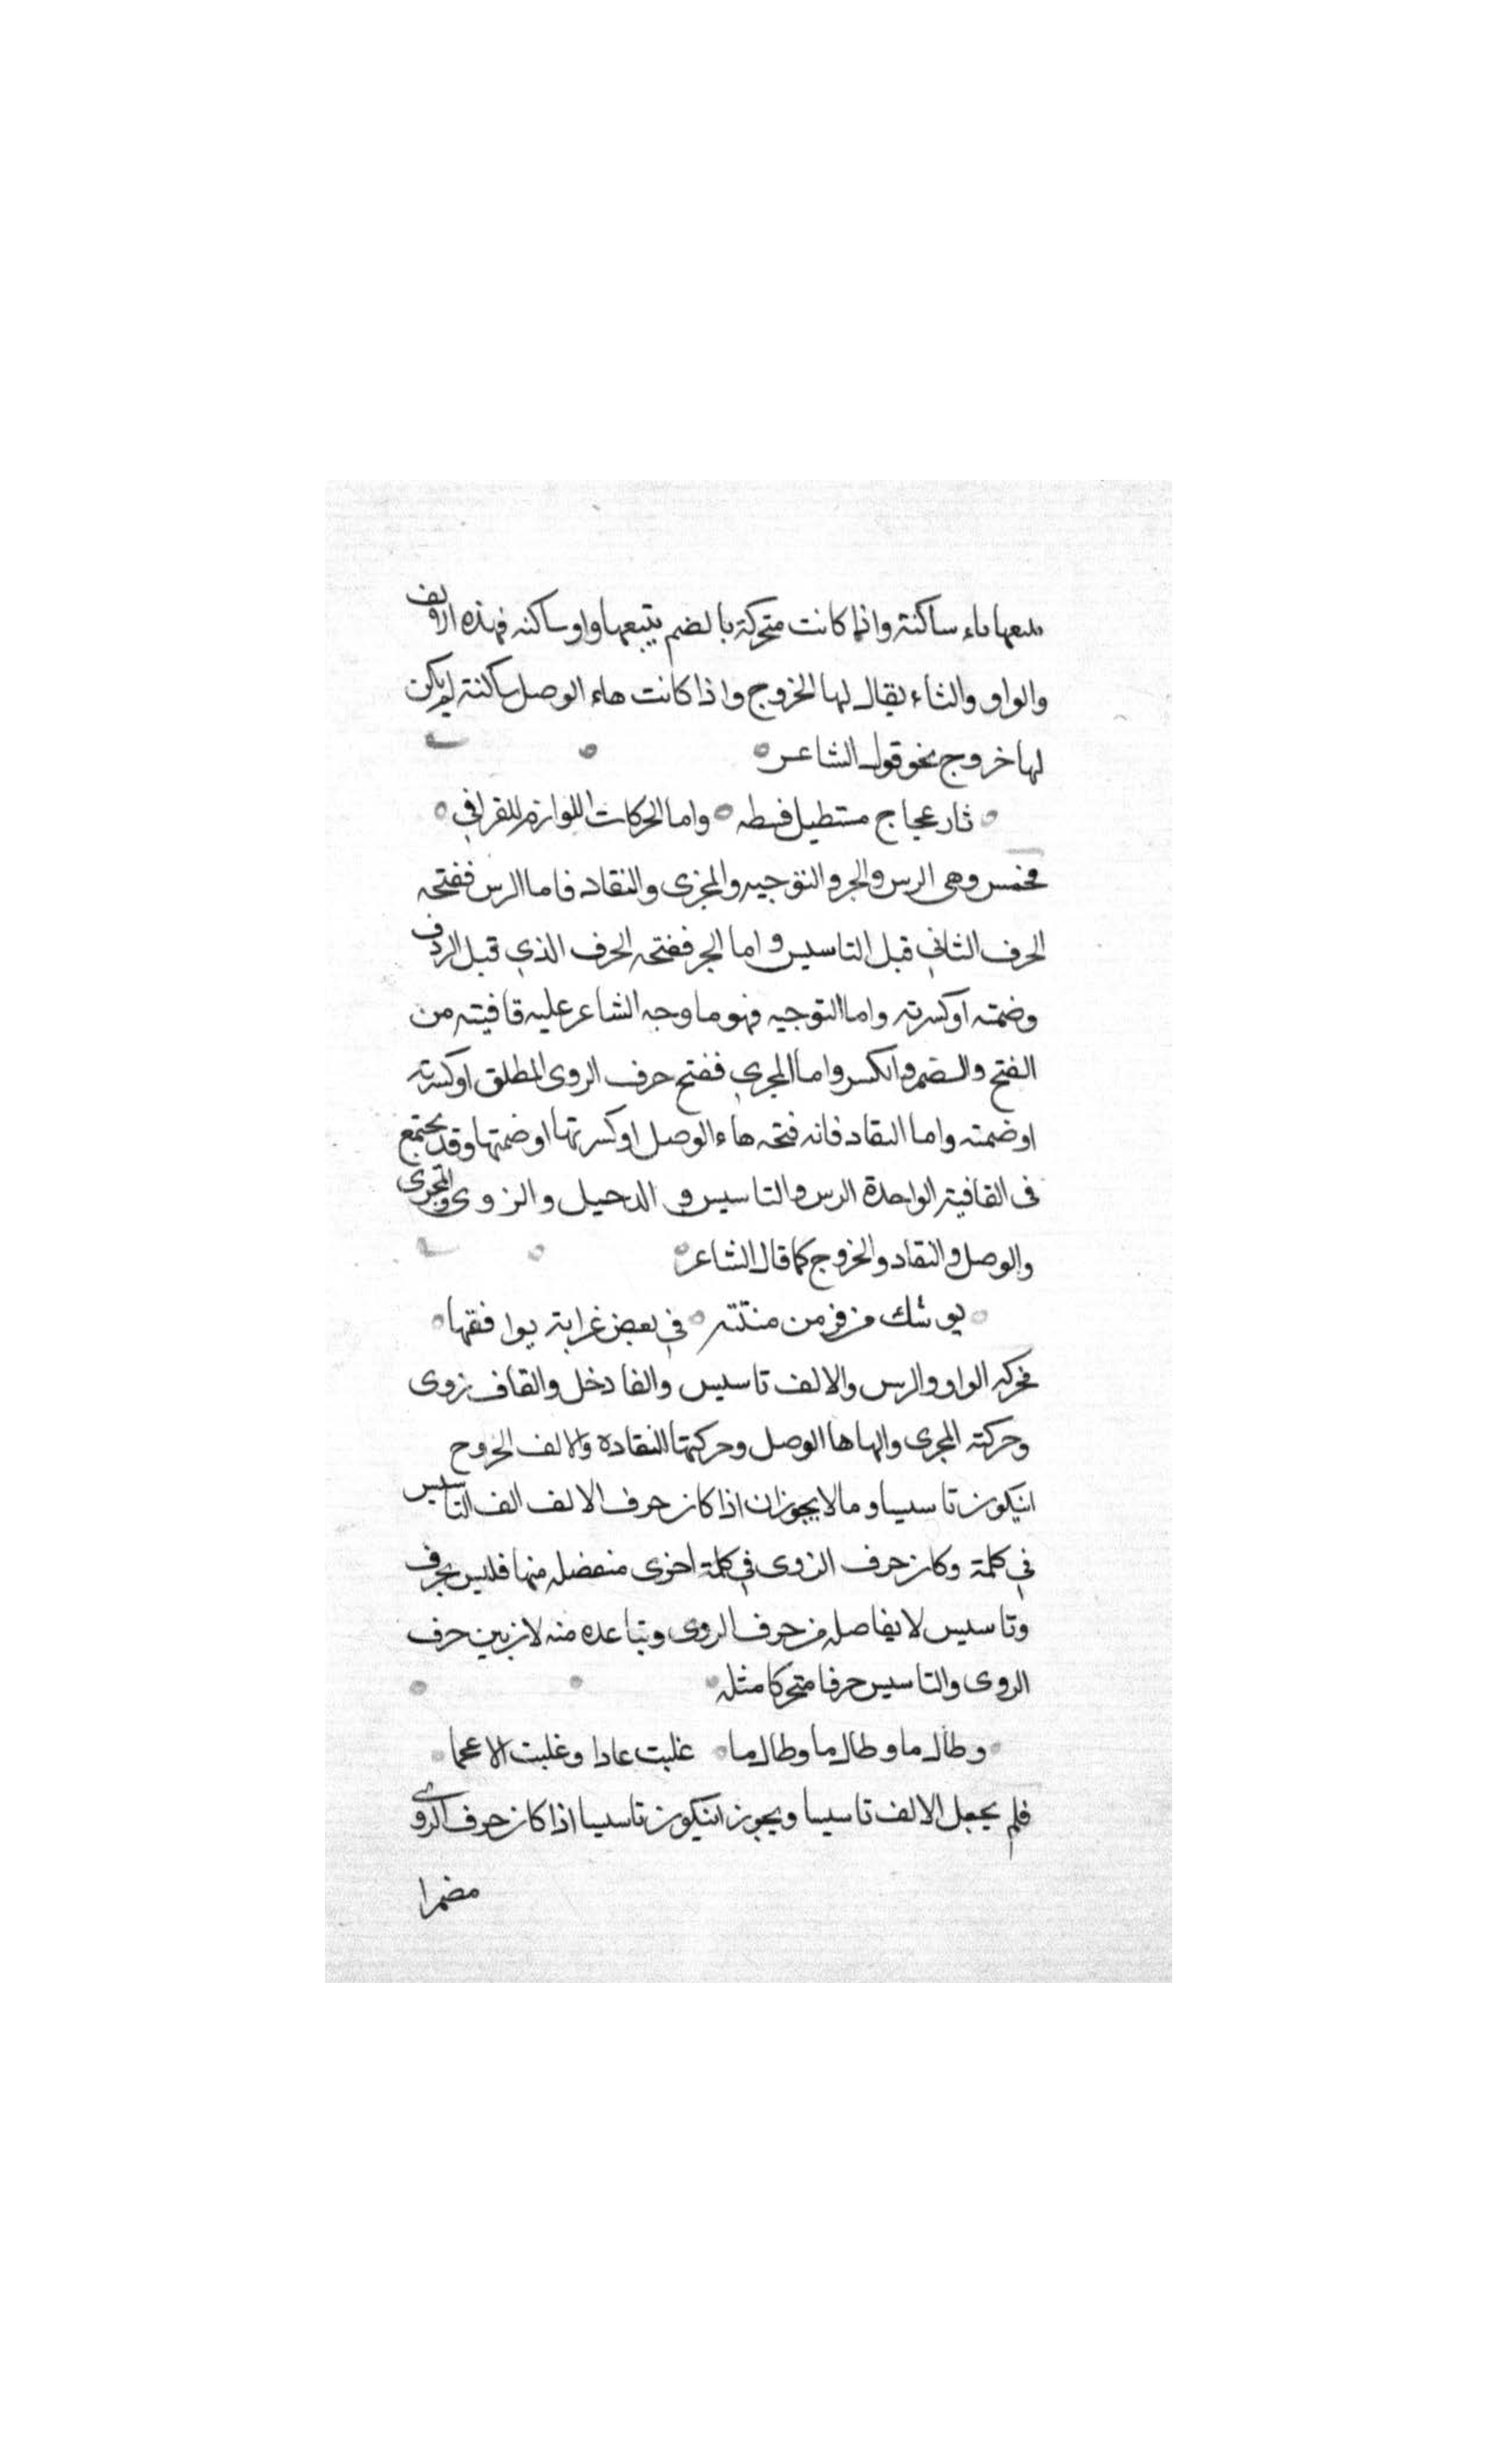 يتبعها ياء ساكنة واذا كانت متحركة بالضم يتبعها واو ساكنه فهذه الالف
والواو والثاء يقال لها الخروج واذا كانت هاء الوصل ساكنة لم يكن
لها خروج نحو قول الشاعر
ثار عجاج مستطيل قسطه واما الحركات اللوازم للقرافي
فخمس وهي الرس والجر والتوجيه والمجزى والنقاد فاما الرس ففتحه
الحرف الثاني قبل التاسيس واما الجر ففتحه الحرف الذي قبل الردف
وضمته او كسرته واما التوجيه فهو ما وجه الشاعر عليه قافيته من
الفتح والضم والكسر واما المجرى ففتح حرف الروى المطلق او كسرته
او ضمته واما النقاد فانه فتحه هاء الوصل او كسرتها او ضمتها وقد يجتمع
فى القافية الواحدة الرس والتاسيس و الدحيل والزوى والمجرى
والوصل والنقاد والخروج كما قال الشاعر
يوشك من فر من منتته في بعض غرابته يوافقها
فحركه الواو والرس والالف تاسيس والفا دخل والقاف زوى
وحركته المجرى والها ها الوصل وحركتها النقاده والالف الخروح
انيكون تاسيسا ومالا يجوز ان اذا كان حرف الالف الف التاسيس
في كلمة وكان حرف الزوى في كلمة اخزى منفضله منها فليس بحرف
وتاسيس لا يفاصله من حرف الروى وتباعده منه لان بين حرف
الروى والتاسيس حرفا متحركا مثله
وطال ما وطال ما وطال ما غلبت عادا وغلبت الاعجما
فلم يجعل الالف تاسيسا ويجوز انيكون تاسيسا اذا كان حرف الروى
مضمرا